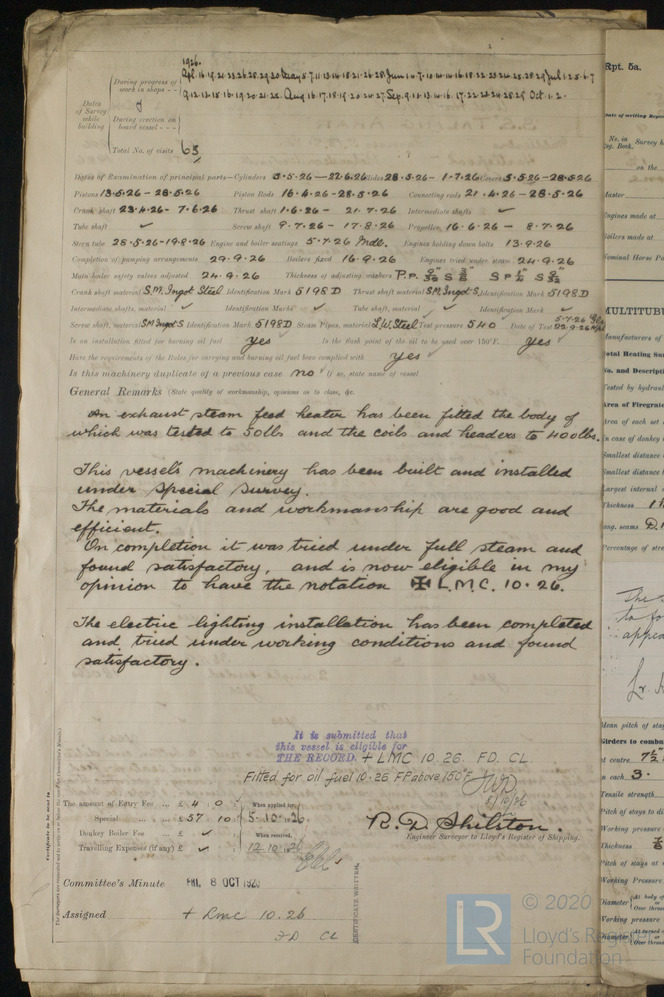 1926.
Apl. 16. 19. 21. 23. 26. 28. 29. 30. May 5. 7. 11. 13. 14. 18. 21. 26. 28. June
During progress of work in shops - -
Aug 16. 17. 18. 19. 20. 24. 27 Sep. 9. 10. 13. 14. 16. 17. 22. 23. 24. 28. 29. Oct. 1. 2.
Dates of Survey while building
During erection on board vessel - - -
Total No. of visits 65
Dates of Examination of principal parts—Cylinders 3.5.26 – 22.6.26 Slides 28.5.26 – 1.7.26 Covers 3.5.26 – 28.5.26
Pistons 13.5.26 – 28.5.26 Piston Rods 16.4.26 – 28.5.26 Connecting rods 21.4.26 – 28.5.26
Crank shaft 23.4.26 – 7.6.26 Thrust shaft 1.6.26 – 21.7.26 Intermediate shafts ✓
Tube shaft ✓ Screw shaft 9.7.26 – 17.8.26 Propeller 16.6.26 – 8.7.26
Stern tube 28.5.26 – 19.8.26 Engine and boiler seatings 5.7.26 Mdle. Engines holding down bolts 13.9.26
Completion of pumping arrangements 29.9.26 Boilers fixed 16.9.26 Engines tried under steam 24.9.26
Main boiler safety valves adjusted 24.9.26 Thickness of adjusting washers P.P. S S P S
Crank shaft material S.M. Ingot Steel Identification Mark 5198D Thrust shaft material S.M. Ingot S. Identification Mark 5198D
Intermediate shafts, material ✓ Identification Marks ✓ Tube shaft, material ✓ Identification Mark ✓
Screw shaft, material S.M Ingot S Identification Mark 5198D Steam Pipes, material L.W. Steel Test pressure 540 Date of Test 5.7.26 22.9.26
Is an installation fitted for burning oil fuel yes Is the flash point of the oil to be used over 150°F. yes ✓
Have the requirements of the Rules for carrying and burning oil fuel been complied with yes ✓
Is this machinery duplicate of a previous case no ✓ If so, state name of vessel
General Remarks (State quality of workmanship, opinions as to class, &c.
An exhaust steam feed heater has been fitted the body of
which was tested to 50lbs and the coils and headers to 400lbs.
This vessel's machinery has been built and installed
under Special Survey.
The materials and workmanship are good and
efficient.
On completion it was tried under full steam and
found satisfactory, and is now eligible in my
opinion to have the notation ✠ L.M.C. 10.26.
The electric lighting installation has been completed
and tried under working conditions and found
satisfactory.
It is submitted that
this vessel is eligible for
THE RECORD. + LMC 10.26. FD. CL
Fitted for oil fuel 10.26 FP above 150°F.
The amount of Entry Fee ... £ 4 : 0 : When applied for,
Special ... ... £ 57 : 10 : 5.10.1926
Donkey Boiler Fee ... £ ✓ : When received,
Travelling Expenses (if any) £ ✓ : 12.10.26
R. D. Shilston.
Engineer Surveyor to Lloyd's Register of Shipping.
Committee's Minute FRI. 8 OCT 1926
Assigned + LMC 10.26
FD CL
CERTIFICATE WRITTEN.
Certificate to be sent to
Rpt. 5a.
Date of writing Report
No. in Reg. Book.
Survey h
on the
Master
Engines made at
Boilers made at
Nominal Horse Po
MULTITUBU
Manufacturers of
Total Heating Su
No. and Descripti
Tested by hydraul
Area of Firegrate
Area of each set
In case of donkey
Smallest distance
Smallest distance
Largest internal
Thickness
long. seams D.
Percentage of stre
The s
to fo
appea
Mean pitch of stay
Girders to combu
at centre 7½"
in each 3.
Tensile strength
Pitch of stays to di
Working pressure
Thickness
Pitch of stays at
Working Pressure
Diameter At body of Over threa
Working pressure
Diameter At turned o Over threa
LR
© 2020
Lloyd's Register
Foundation